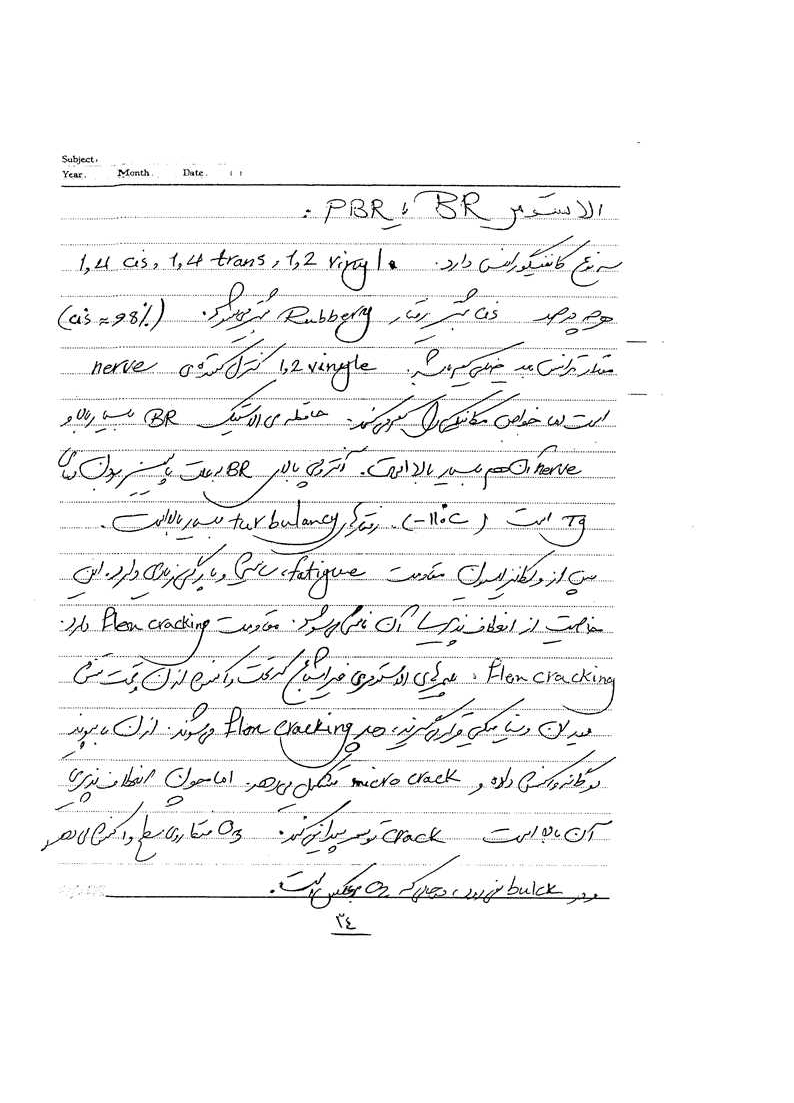 Subject:
Year. Month. Date. ( )
الاستومر BR یا PBR :
سه نوع کانفیگوراسیون دارد. 1,4 cis, 1,4 trans, 1,2 vinyl
هرچه درصد cis بیشتر رفتار Rubbery بهتر می‌شود. (cis ≈ 98%)
مقدار ترانس باید خیلی کم باشد. 1,2 vingle کنترل کننده‌ی nerve
است اما خواص مکانیکی را کم می‌کند. حافظه‌ی الاستیک BR بسیار بالا و
nerve آن هم بسیار بالا است. آنتروپی بالای BR بعلت پایین بودن دمای
Tg است (-110°C). رفتار turbulancy بسیار بالا است.
پس از ولکانیزاسیون مقاومت fatigue، سایشی و پارگی زیادی دارد. این
خاصیت از انعطاف پذیری آن ناشی می‌شود. مقاومت flen cracking دارد.
flen cracking : الاستومری غیر اشباع که تحت واکنش ازن و تحت تنش
میدان دینامیکی قرار می‌گیرند، flen cracking می‌شوند. ازن با پیوند
دوگانه واکنش داده و micro crack تشکیل می‌دهد. اما چون انعطاف پذیری
آن بالا است crack توسعه پیدا نمی‌کند. O3 روی سطح واکنش می‌دهد
و در bulck نمی‌رود، در حالی که O2 برعکس است.
٣٤